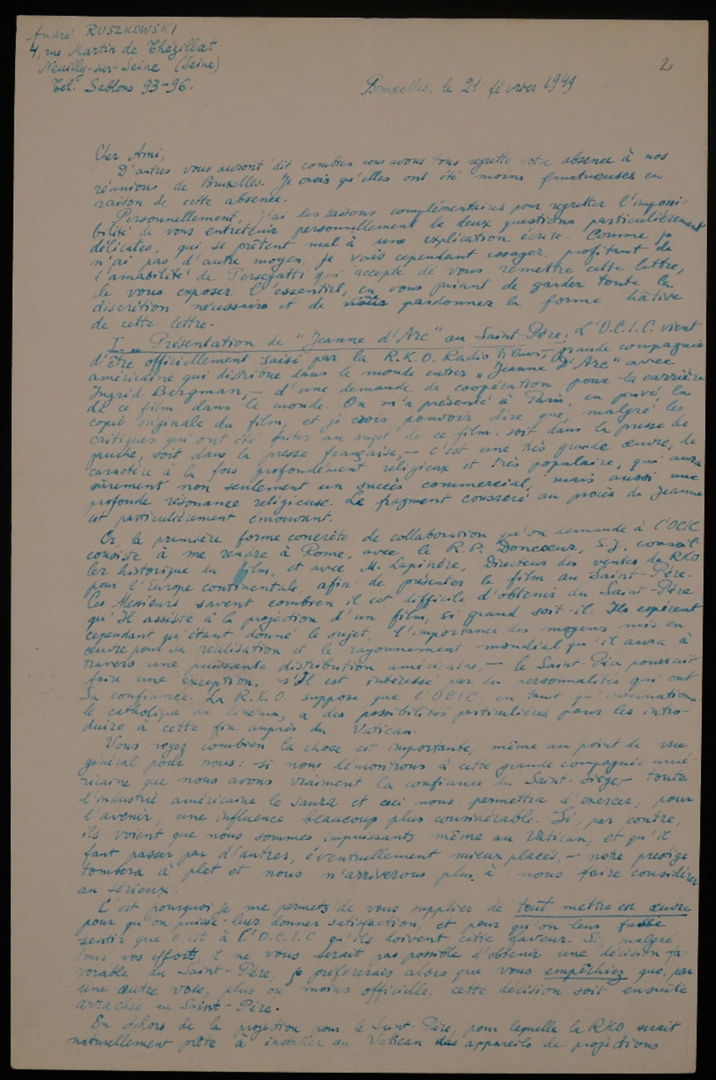 André RUSZKOWSKI
4, rue Martin de Thézillat
Neuilly-sur-Seine (Seine)
Tél. Sablons 93-96.
2
Bruxelles, le 21 février 1949
Cher Ami,
D'autres vous auront dit combien nous avons tous regretté votre absence à nos
réunions de Bruxelles. Je crois qu'elles ont été moins fructueuses en
raison de cette absence.
Personnellement, j'ai des raisons complémentaires pour regretter l'impossi
bilité de vous entretenir personnellement de deux questions particulièrement
délicates, qui se prêtent mal à une explication écrite. Comme je
n'ai pas d'autre moyen, je vais cependant essayer, profitant de
l'amabilité de Persegatti qui accepte de vous remettre cette lettre,
de vous exposer l'essentiel, en vous priant de garder toute la
discrétion nécessaire et de pardonner la forme hâtive
de cette lettre.
I. - Présentation de "Jeanne d'Arc" au Saint-Père. L'O.C.I.C. vient
d'être officiellement saisi par la R.K.O. Radio Films, grande compagnie
américaine qui distribue dans le monde entier "Jeanne d'Arc" avec
Ingrid Bergman, - d'une demande de coopération pour la carrière
de ce film dans le monde. On m'a présenté à Paris, en privé, la
copie originale du film, et je crois pouvoir dire que, malgré les
critiques qui ont été faites au sujet de ce film, soit dans la presse de
gauche, soit dans la presse française, - c'est une très grande œuvre, de
caractère à la fois profondément religieux et très populaire, qui aura
sûrement non seulement un succès commercial, mais aussi une
profonde résonance religieuse. Le fragment consacré au procès de Jeanne
est particulièrement émouvant.
Or la première forme concrète de collaboration qu'on demande à l'OCIC
consiste à me rendre à Rome, avec le R.P. Doncœur, S.J., conseil
ler historique du film, et avec M. Lapinère, Directeur des ventes de RKO
pour l'Europe continentale, afin de présenter le film au Saint-Père.
Ces Messieurs savent combien il est difficile d'obtenir du Saint-Père
qu'Il assiste à la projection d'un film, si grand soit-il. Ils espèrent
cependant qu'étant donné le sujet, l'importance des moyens mis en
œuvre pour sa réalisation et le rayonnement mondial qu'il aura à
travers une puissante distribution américaine - le Saint-Père pourrait
faire une exception, s'Il est intéressé par des personnalités qui ont
Sa confiance. La R.K.O. suppose que l'OCIC, en tant qu'
le catholique du cinéma, a des possibilités particulières pour les intro-
duire à cette fin auprès du Vatican.
Vous voyez combien la chose est importante, même au point de vue
général pour nous: si nous démontrons à cette grande compagnie amé-
ricaine que nous avons vraiment la confiance du Saint-Siège, - toute
l'industrie américaine le saura et ceci nous permettra d'exercer, pour
l'avenir, une influence beaucoup plus considérable. Si, par contre,
ils voient que nous sommes impuissants même au Vatican, et qu'il
faut passer par d'autres, éventuellement mieux placés, - notre prestige
tombera à plat et nous n'arriverons plus à nous faire considérer
au sérieux.
C'est pourquoi je me permets de vous supplier de tout mettre en œuvre
pour qu'on puisse leur donner satisfaction, et pour qu'on leur fasse
sentir que c'est à l'O.C.I.C qu'ils doivent cette faveur. Si, malgré
tous vos efforts, il ne vous serait pas possible d'obtenir une décision fa
vorable du Saint-Père, je préférerais alors que vous empêchiez que, par
une autre voie, plus ou moins officielle, cette décision soit ensuite
arrachée au Saint-Père.
En dehors de la projection pour le Saint Père, pour laquelle la RKO serait
naturellement prête à installer au Vatican des appareils de projections